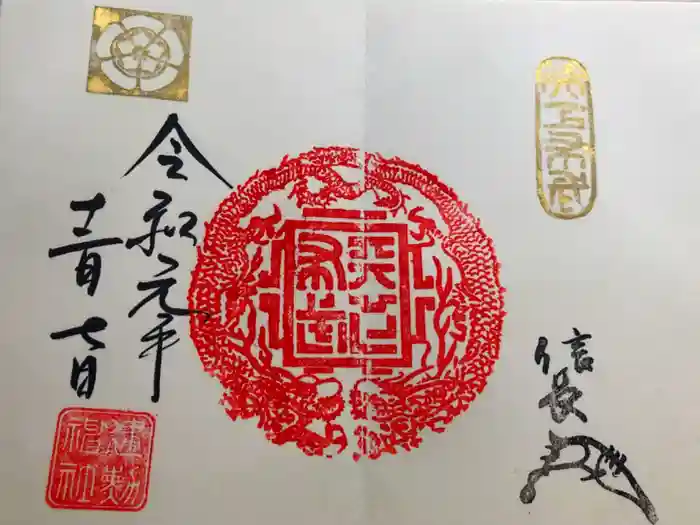 天下布武
信長
天下
布武
令和元年
十一月七日
建勲
神社